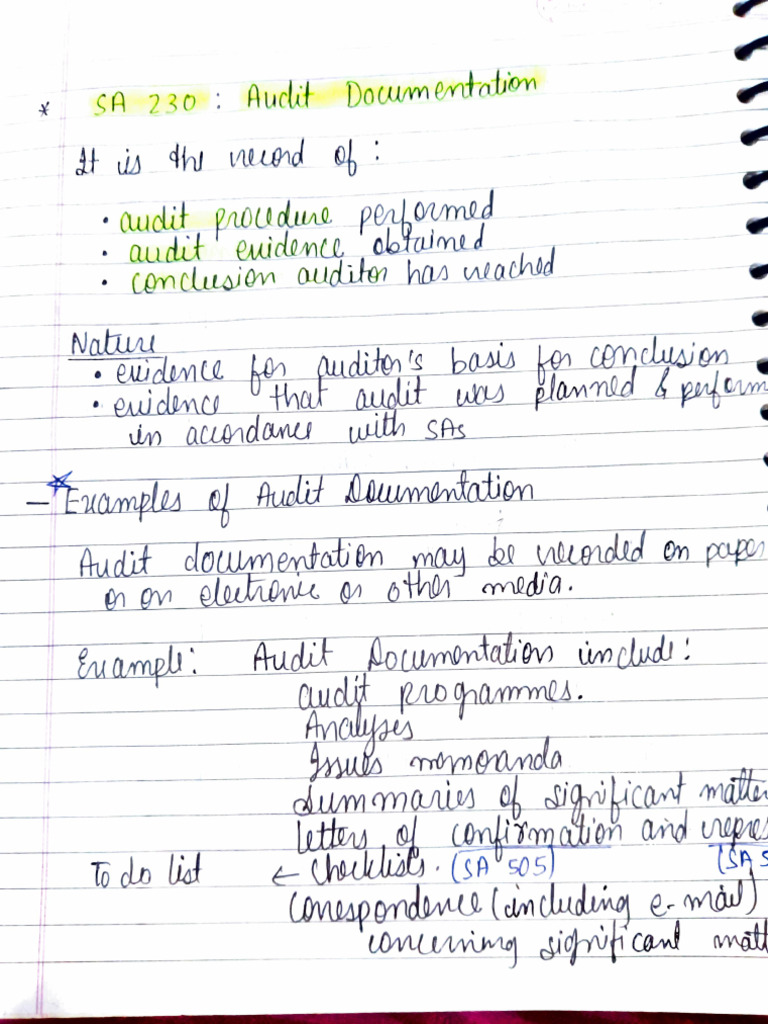 * SA 230 : Audit Documentation
It is the record of :
• audit procedure performed
• audit evidence obtained
• conclusion auditor has reached
Nature
• evidence for auditor's basis for conclusion
• evidence that audit was planned & perform
in accordance with SAs
— Examples of Audit Documentation
Audit documentation may be recorded on paper
or on electronic or other media.
Example: Audit Documentation include:
audit programmes.
Analyses
Issues memoranda
Summaries of significant matte
letters of confirmation and repres
To do list ← Checklists. (SA 505) (SA 5
Correspondence (including e-mail)
concerning significant matt